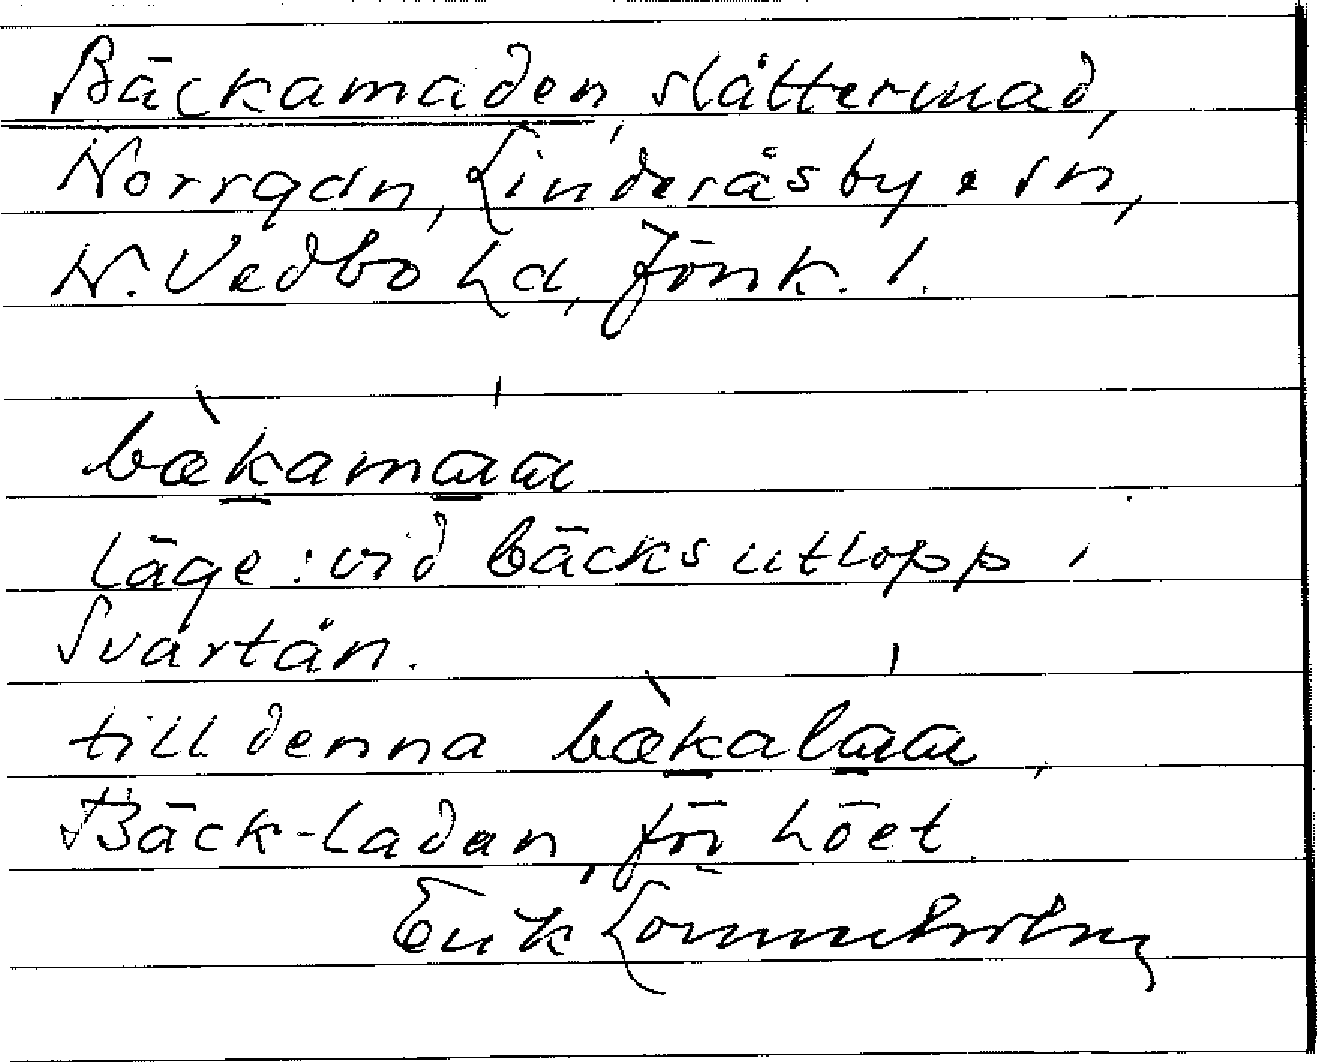 Bäckamaden, slåttermad,
Norrgdn, Linderåsby o sn,
N. Vedbo hd, Jönk. l.
bækamaa
Läge: vid bäcks utlopp i
Svartån.
till denna bækalaa,
Bäck-ladan, för höet.
Erik